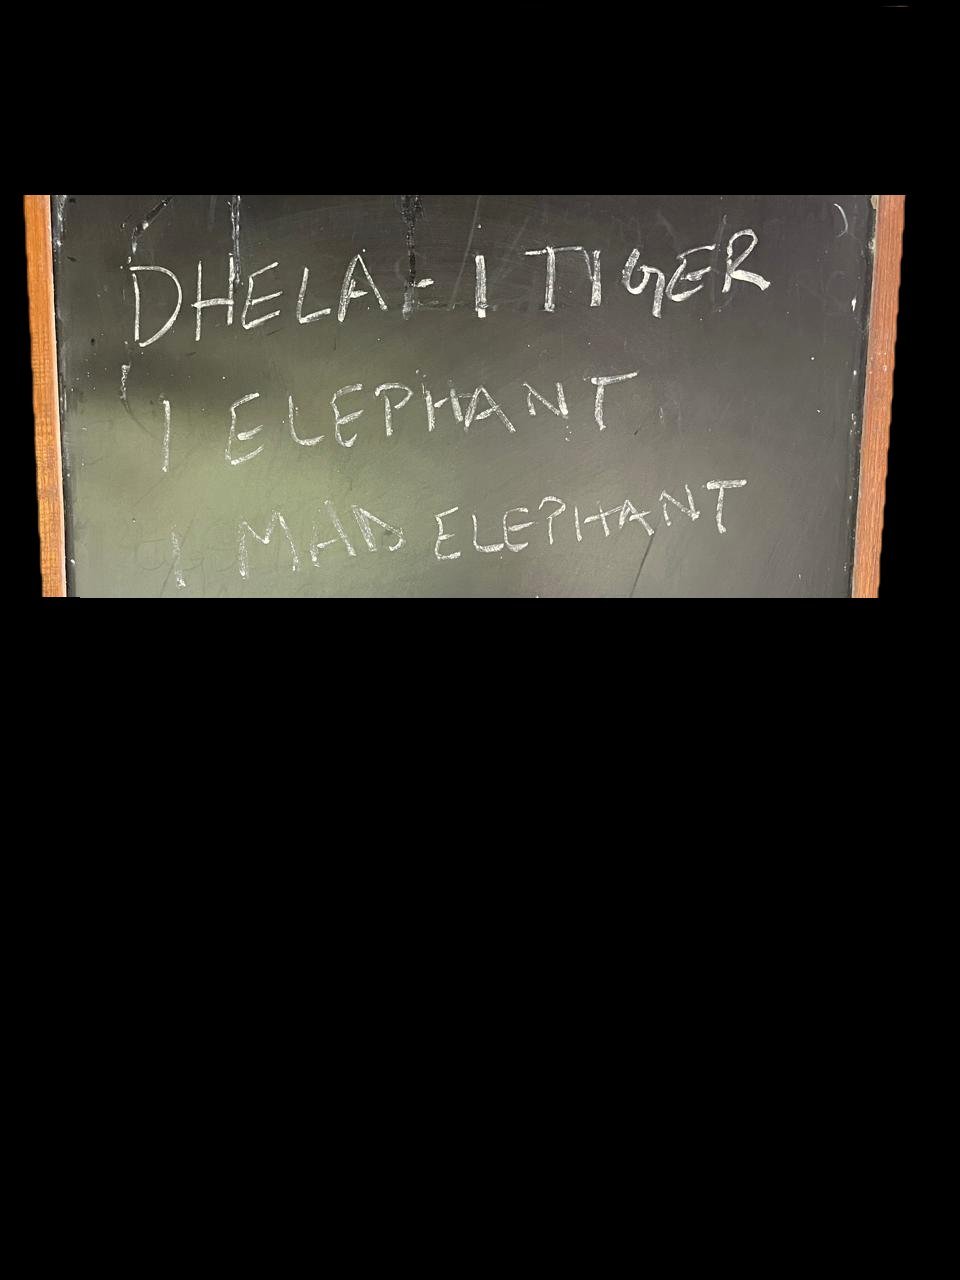 DHELA - 1 TIGER
1 ELEPHANT
1 MAD ELEPHANT